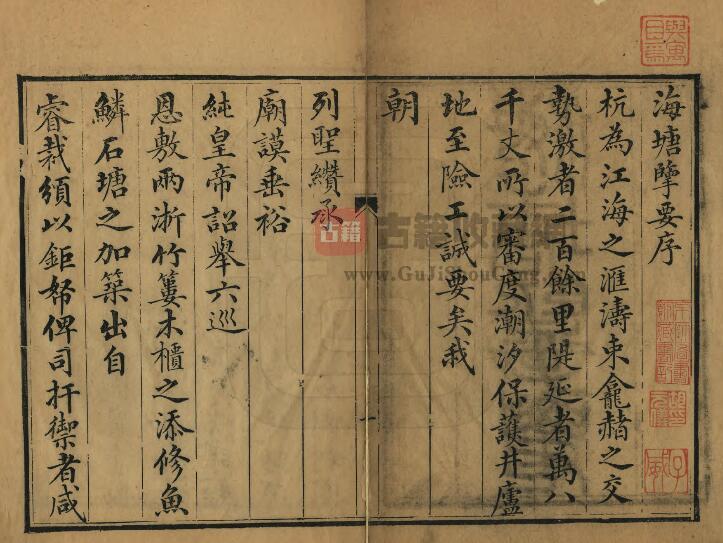 海塘擥要序
杭為江海之滙濤束龕赭之交
勢激者二百餘里隄延者萬八
千丈所以審度潮汐保護井廬
地至險工誠要矣我
朝
列聖纘承
廟謨垂裕
純皇帝詔舉六巡
恩敷兩浙竹簍木櫃之添修魚
鱗石塘之加築出自
睿裁須以鉅帑俾司扞禦者咸
古籍
古籍收藏網
www.GuJiShouCang.com